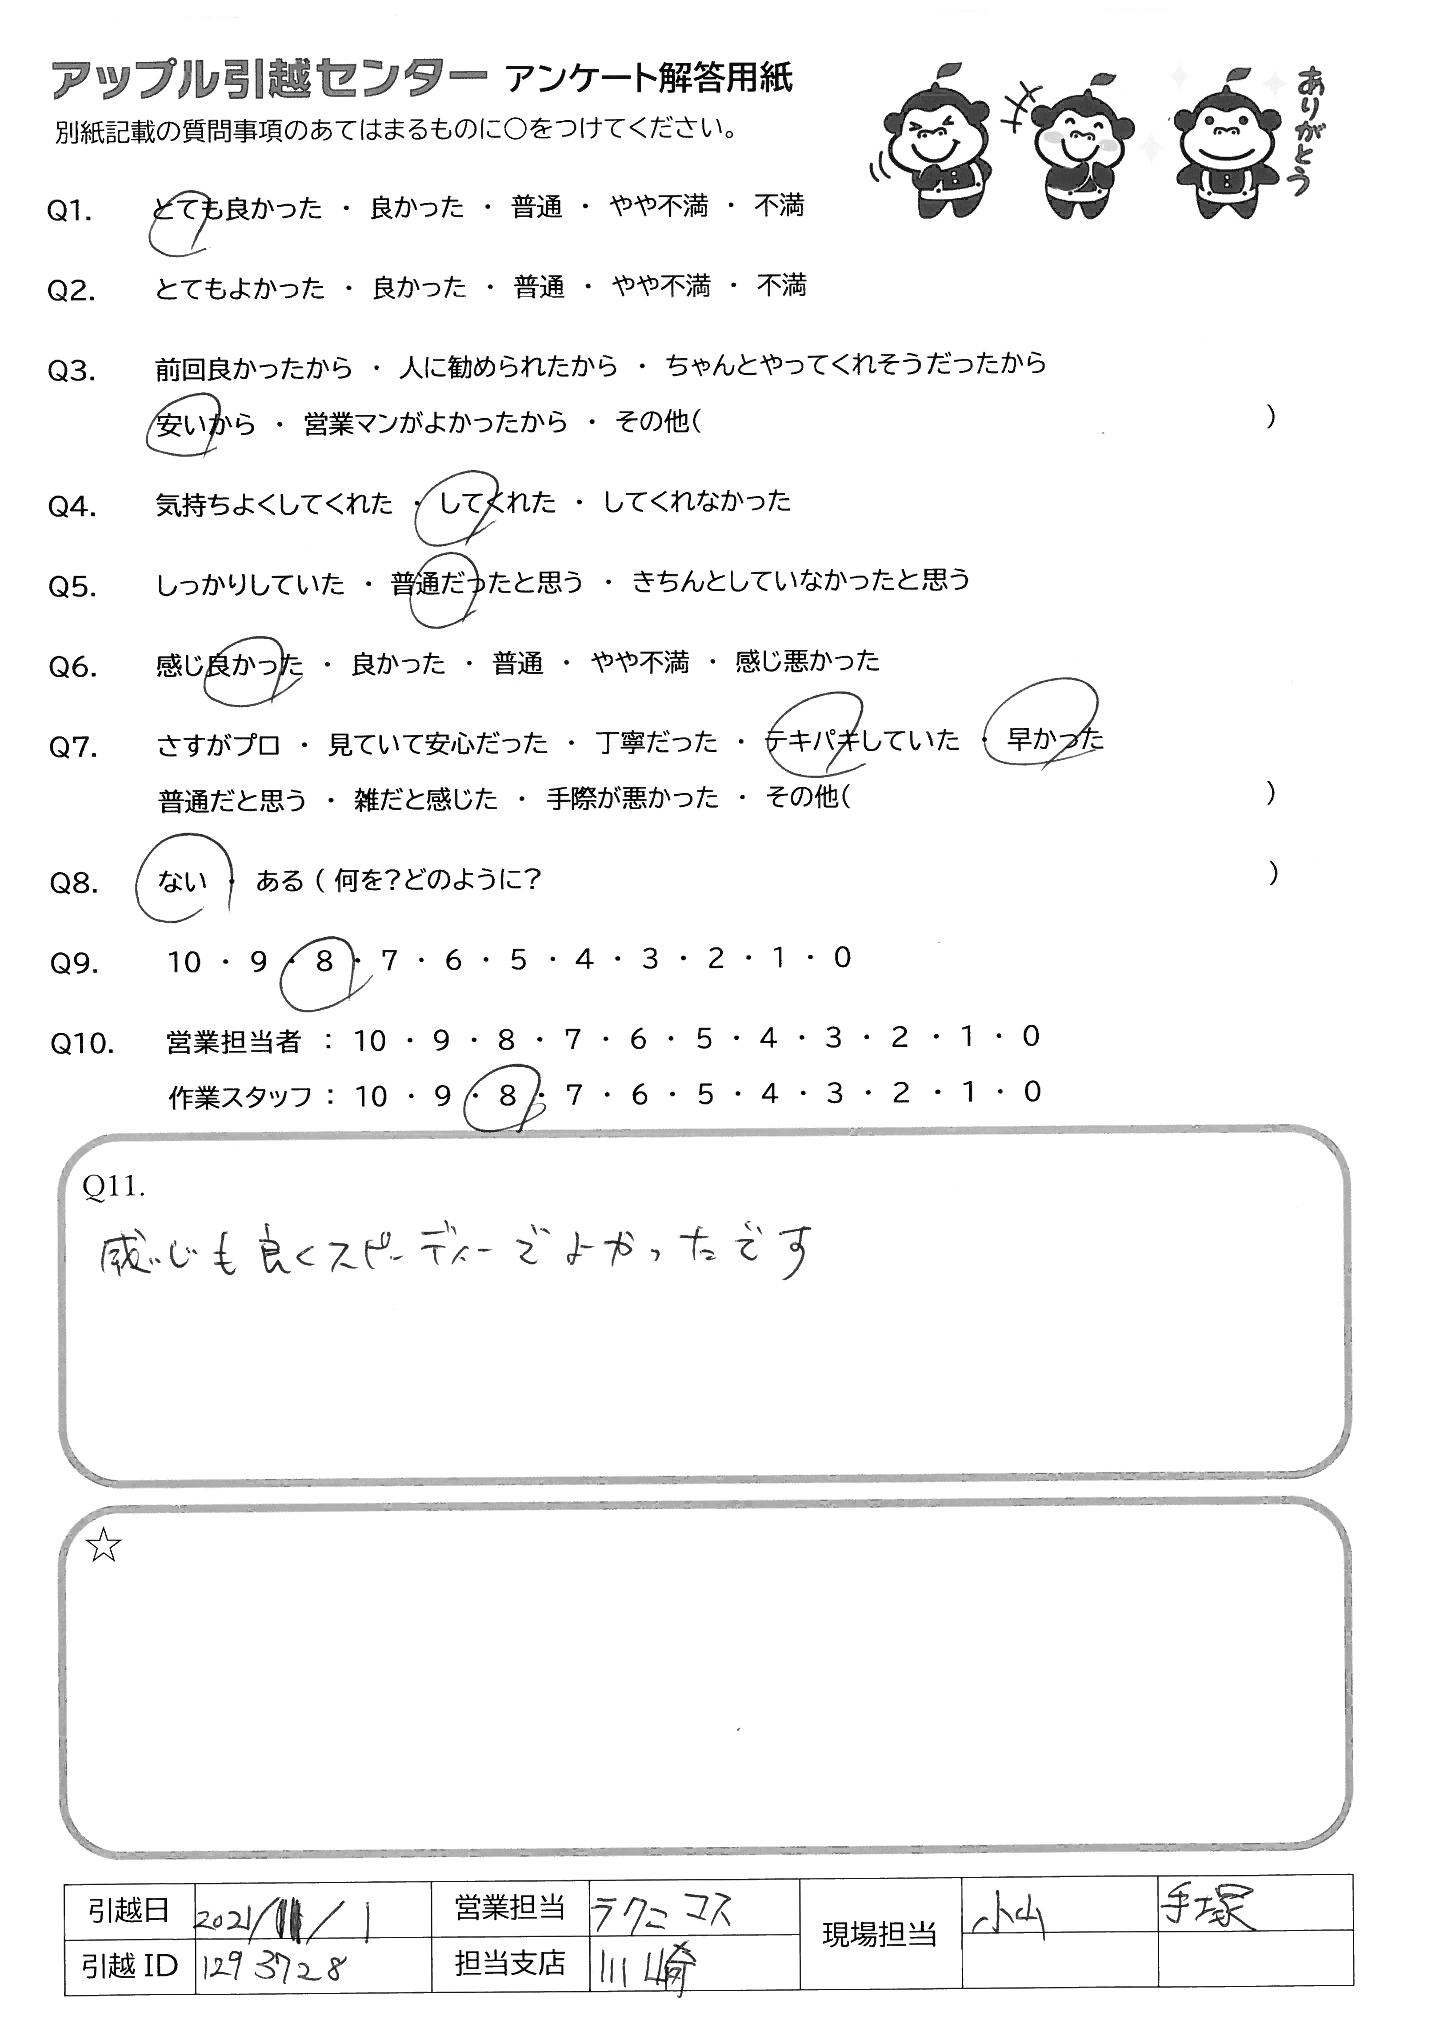 アップル引越センター アンケート解答用紙
別紙記載の質問事項のあてはまるものに○をつけてください。
ありがとう
Q1. とても良かった ・ 良かった ・ 普通 ・ やや不満 ・ 不満
Q2. とてもよかった ・ 良かった ・ 普通 ・ やや不満 ・ 不満
Q3. 前回良かったから ・ 人に勧められたから ・ ちゃんとやってくれそうだったから
安いから ・ 営業マンがよかったから ・ その他( )
Q4. 気持ちよくしてくれた ・ してくれた ・ してくれなかった
Q5. しっかりしていた ・ 普通だったと思う ・ きちんとしていなかったと思う
Q6. 感じ良かった ・ 良かった ・ 普通 ・ やや不満 ・ 感じ悪かった
Q7. さすがプロ ・ 見ていて安心だった ・ 丁寧だった ・ テキパキしていた ・ 早かった
普通だと思う ・ 雑だと感じた ・ 手際が悪かった ・ その他( )
Q8. ない ・ ある ( 何を?どのように? )
Q9. 10 ・ 9 ・ 8 ・ 7 ・ 6 ・ 5 ・ 4 ・ 3 ・ 2 ・ 1 ・ 0
Q10. 営業担当者 : 10 ・ 9 ・ 8 ・ 7 ・ 6 ・ 5 ・ 4 ・ 3 ・ 2 ・ 1 ・ 0
作業スタッフ : 10 ・ 9 ・ 8 ・ 7 ・ 6 ・ 5 ・ 4 ・ 3 ・ 2 ・ 1 ・ 0
Q11.
感じも良くスピーディーでよかったです
☆
引越日 2021/11/1 営業担当 ラクニコス 現場担当 小山 手塚
引越ID 1293728 担当支店 川崎